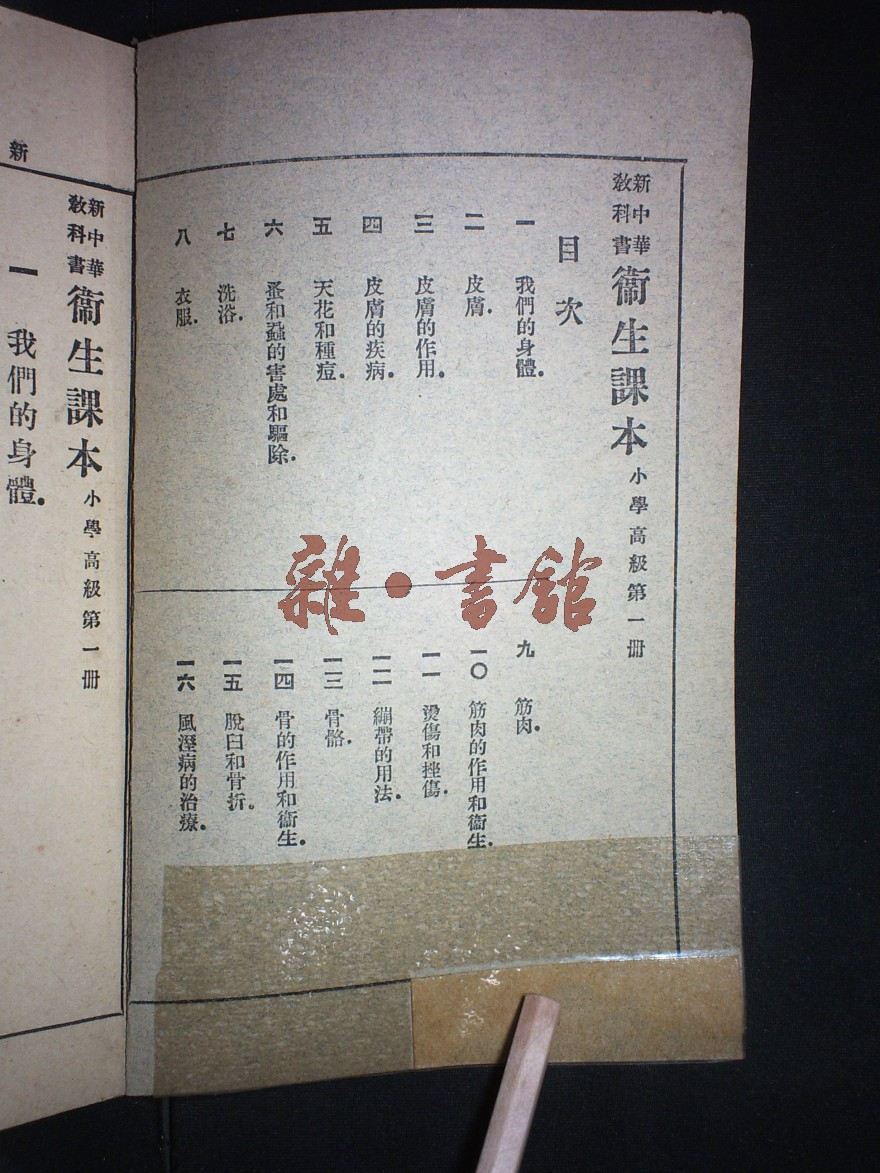 新中華
教科書
衞生課本 小學高級第一册
目次
一 我們的身體.
二 皮膚.
三 皮膚的作用.
四 皮膚的疾病.
五 天花和種痘.
六 蚤和蝨的害處和驅除.
七 洗浴.
八 衣服.
九 筋肉.
一〇 筋肉的作用和衞生.
一一 燙傷和挫傷.
一二 繃帶的用法.
一三 骨骼.
一四 骨的作用和衞生.
一五 脫臼和骨折.
一六 風溼病的治療.
新中華
教科書
衞生課本 小學高級第一册
一 我們的身體.
新
雜·書館